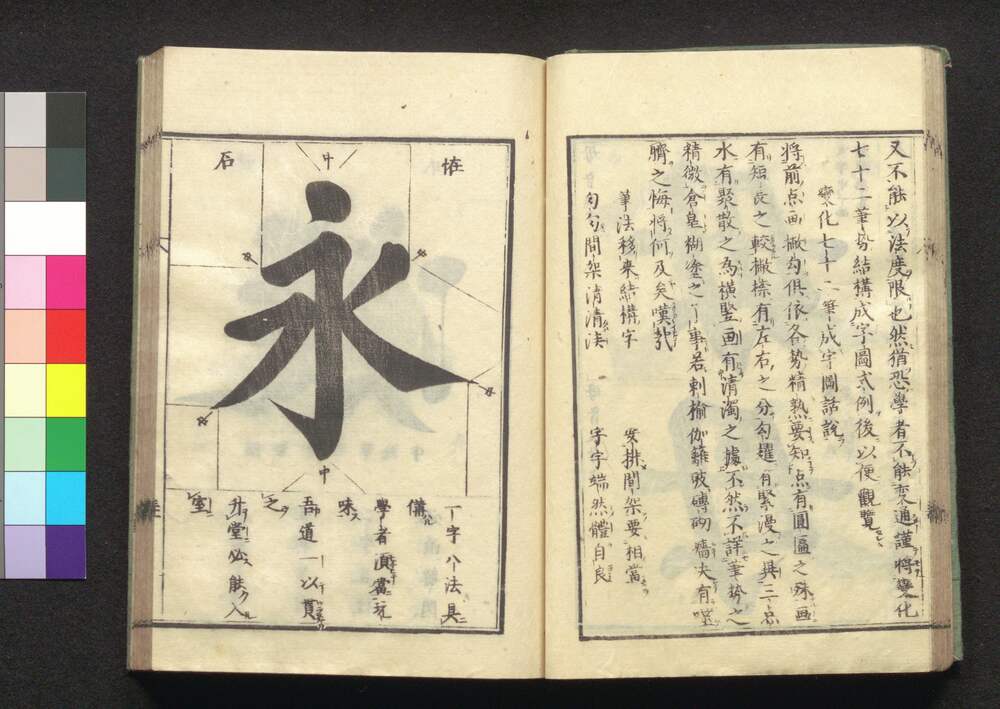 又不能以法度限也然猶恐學者不能変通謹将変化
七十二筆勢結構成字圖式例後以便觀覽
変化七十二筆成字圖話説
将前点画撇勾俱依各勢精熟要知点有圓匾之殊画
有短長之較撇捺有左右之分勾趯有緊漫之異三点
水有聚散之為横竪画有清濁之據不然不詳筆勢之
精微倉皇糊塗之了事若剌榆伽籬破磚砌墻決有噬
臍之悔将何及矣嘆哉
筆法移来結構字 安排間架要相當
勾勾間架清清法 字字端然體自良
石
永
中
一字八法具
備
學者須當玩
味
吾道一以貫
之
升堂必能入
室